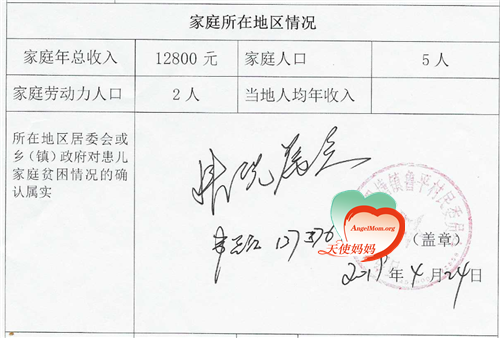 家庭所在地区情况
家庭年总收入 12800 元 家庭人口 5 人
家庭劳动力人口 2 人 当地人均年收入
所在地区居委会或
乡（镇）政府对患儿
家庭贫困情况的确
认属实
情况属实
AngelMom.org
天使妈妈
（盖章）
年 4 月 24 日